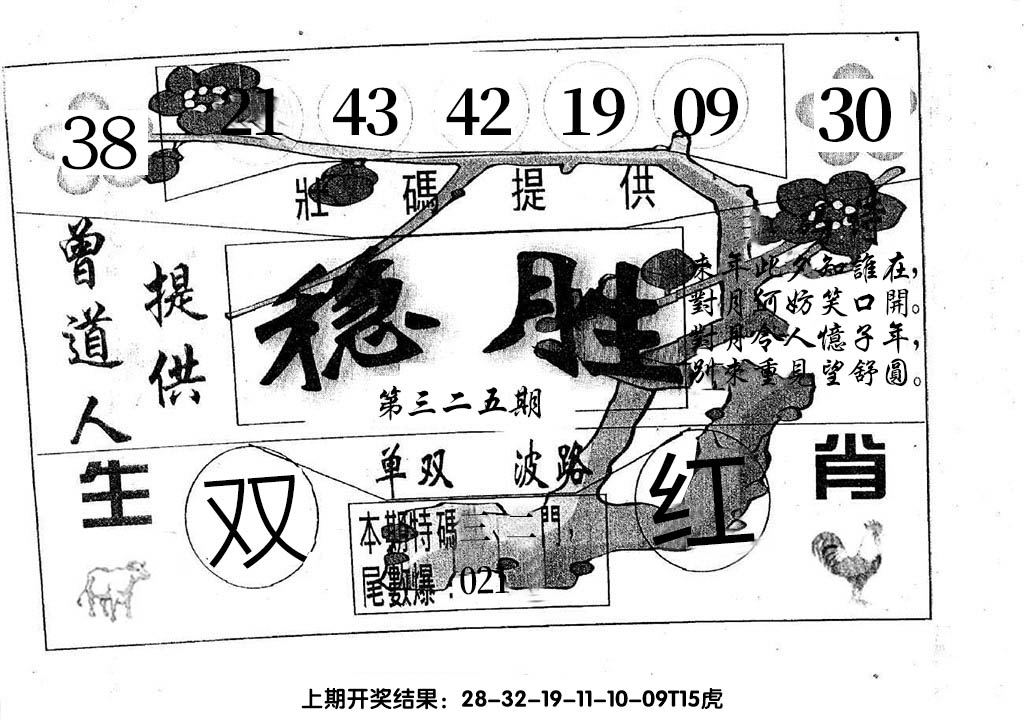 38 21 43 42 19 09 30
壯碼提供
特
曾道人
提供
稳胜
第三二五期
來年此夕知誰在,
對月何妨笑口開。
對月令人憶子年,
別來重見望舒圓。
单双 波路
生 肖
双 红
本期特碼三、二門,
尾數爆:021
上期开奖结果:28-32-19-11-10-09T15虎